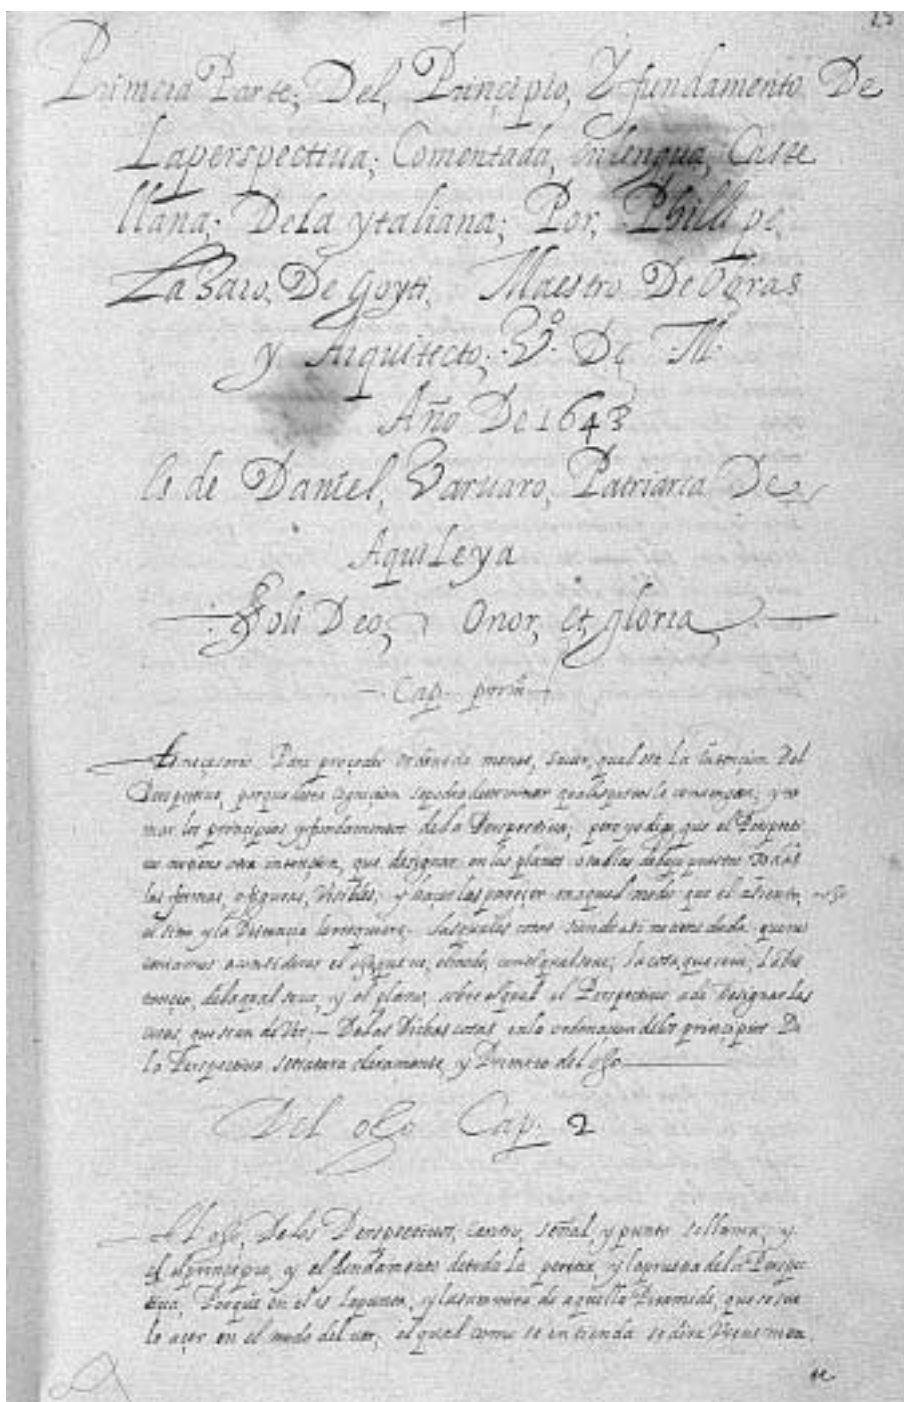 25
Primera Parte; Del, Principio, Y fundamento, De
Laperspectiua; Comentada, enlengua, Caste
llana; Dela ytaliana; Por, Phillipe,
Lazaro, De Goyti, Maestro De Obras
y Arquitecto; Vº. De M.
Año De 1643
es de Daniel, Varuaro, Patriarca De
Aquileya
Soli Deo, Onor, et, gloria
Cap. prim
Es neçesario Para proçeder ordenada mente, sauer, qual sea La intençion Del
Perspectiuo, porque desta cogniçion sepodra determinar
mar los prinçipios yfundamentos de la Perspectiua; pero yo digo, que el Perspecti
uo no tiene otra intençion, que designar en los planos o tablas debujo puestos Todas
las formas, o figuras, Visibles; y haçer las pareçer en aquel modo que el asiento,
el sitio y la Distancia lo requiere. Las quales cosas siendo asi no tiene duda que no
uengamos a considerar el ojo que ue, el modo, conel qual seue; la cosa, que seue; La Dis
tançia, dela qual seue, y el plano, sobre el qual el Perspectiuo a de Designar las
cosas, que sean de Ver;— Delas Dichas cosas enla ordenaçion delos prinçipios De
la Perspectiua setratara claramente, y Primero del ojo
Del ojo Cap. 2
El ojo, De los Perspectiuos, centro, señal y punto sellama; y
es el prinçipio, y el fundamento de toda la periçia, y la prueua de la Perspec
tiua, Porque en el es la punta, y la summa de aquella Piramide, que se sue
le açer en el modo del uer, el qual como se entienda se dira Breuemen
te